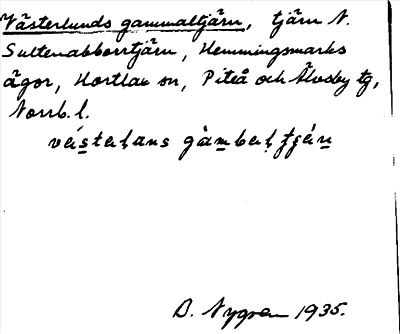 Västerlunds gammaltjärn, tjärn N.
Svltenabborrtjärn, Hemmingsmarks
ägor, Hortlax sn, Piteå och Älvsby tg,
Norrb. l.
vä́sterḷans gàmbeḷ tjä́rn
D. Nygren 1935.